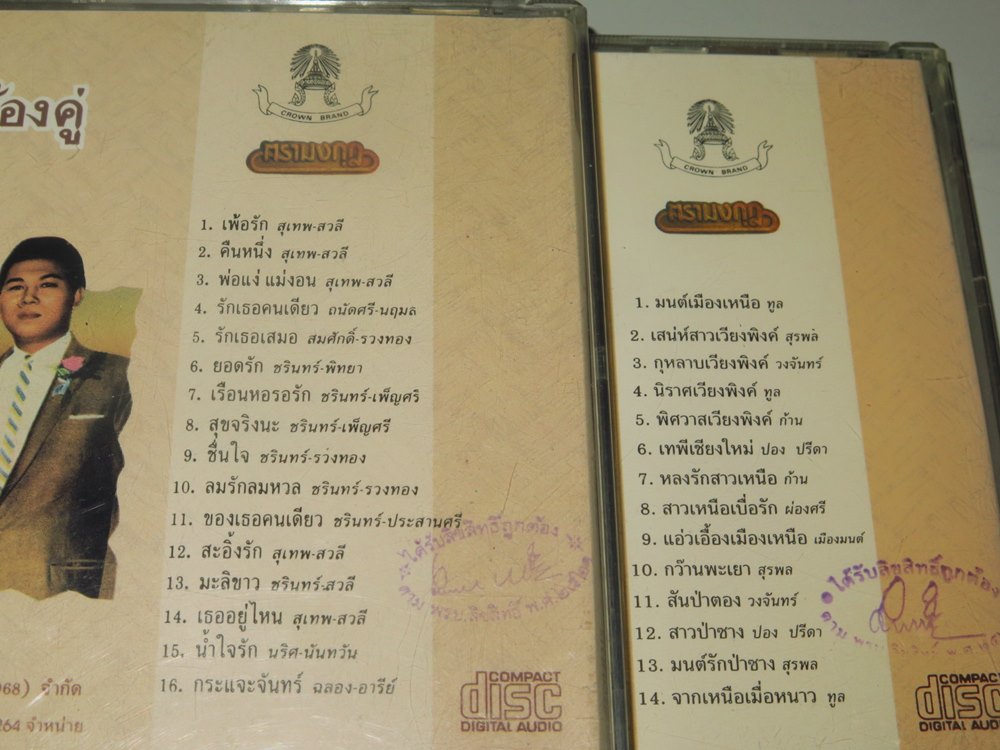 ้องคู่
CROWN BRAND
ตรามงกุฎ
1. เพ้อรัก สุเทพ-สวลี
2. คืนหนึ่ง สุเทพ-สวลี
3. พ่อแง่ แม่งอน สุเทพ-สวลี
4. รักเธอคนเดียว ถนัดศรี-นฤมล
5. รักเธอเสมอ สมศักดิ์-รวงทอง
6. ยอดรัก ชรินทร์-พิทยา
7. เรือนหอรอรัก ชรินทร์-เพ็ญศรี
8. สุขจริงนะ ชรินทร์-เพ็ญศรี
9. ชื่นใจ ชรินทร์-รวงทอง
10. ลมรักลมหวล ชรินทร์-รวงทอง
11. ของเธอคนเดียว ชรินทร์-ประสานศรี
12. สะอิ้งรัก สุเทพ-สวลี
13. มะลิขาว ชรินทร์-สวลี
14. เธออยู่ไหน สุเทพ-สวลี
15. น้ำใจรัก นริศ-นันทวัน
16. กระแจะจันทร์ ฉลอง-อารีย์
ได้รับลิขสิทธิ์ถูกต้อง
ตาม พรบ.ลิขสิทธิ์ พ.ศ.
968) จำกัด
264 จำหน่าย
COMPACT
disc
DIGITAL AUDIO
CROWN BRAND
ตรามงกุฎ
1. มนต์เมืองเหนือ ทูล
2. เสน่ห์สาวเวียงพิงค์ สุรพล
3. กุหลาบเวียงพิงค์ วงจันทร์
4. นิราศเวียงพิงค์ ทูล
5. พิศวาสเวียงพิงค์ ก้าน
6. เทพีเชียงใหม่ ปอง ปรีดา
7. หลงรักสาวเหนือ ก้าน
8. สาวเหนือเบื่อรัก ผ่องศรี
9. แอ่วเอื้องเมืองเหนือ เมืองมนต์
10. กว๊านพะเยา สุรพล
11. สันป่าตอง วงจันทร์
12. สาวป่าซาง ปอง ปรีดา
13. มนต์รักป่าซาง สุรพล
14. จากเหนือเมื่อหนาว ทูล
ได้รับลิขสิทธิ์ถูกต้อง
COMPACT
disc
DIGITAL AUDIO